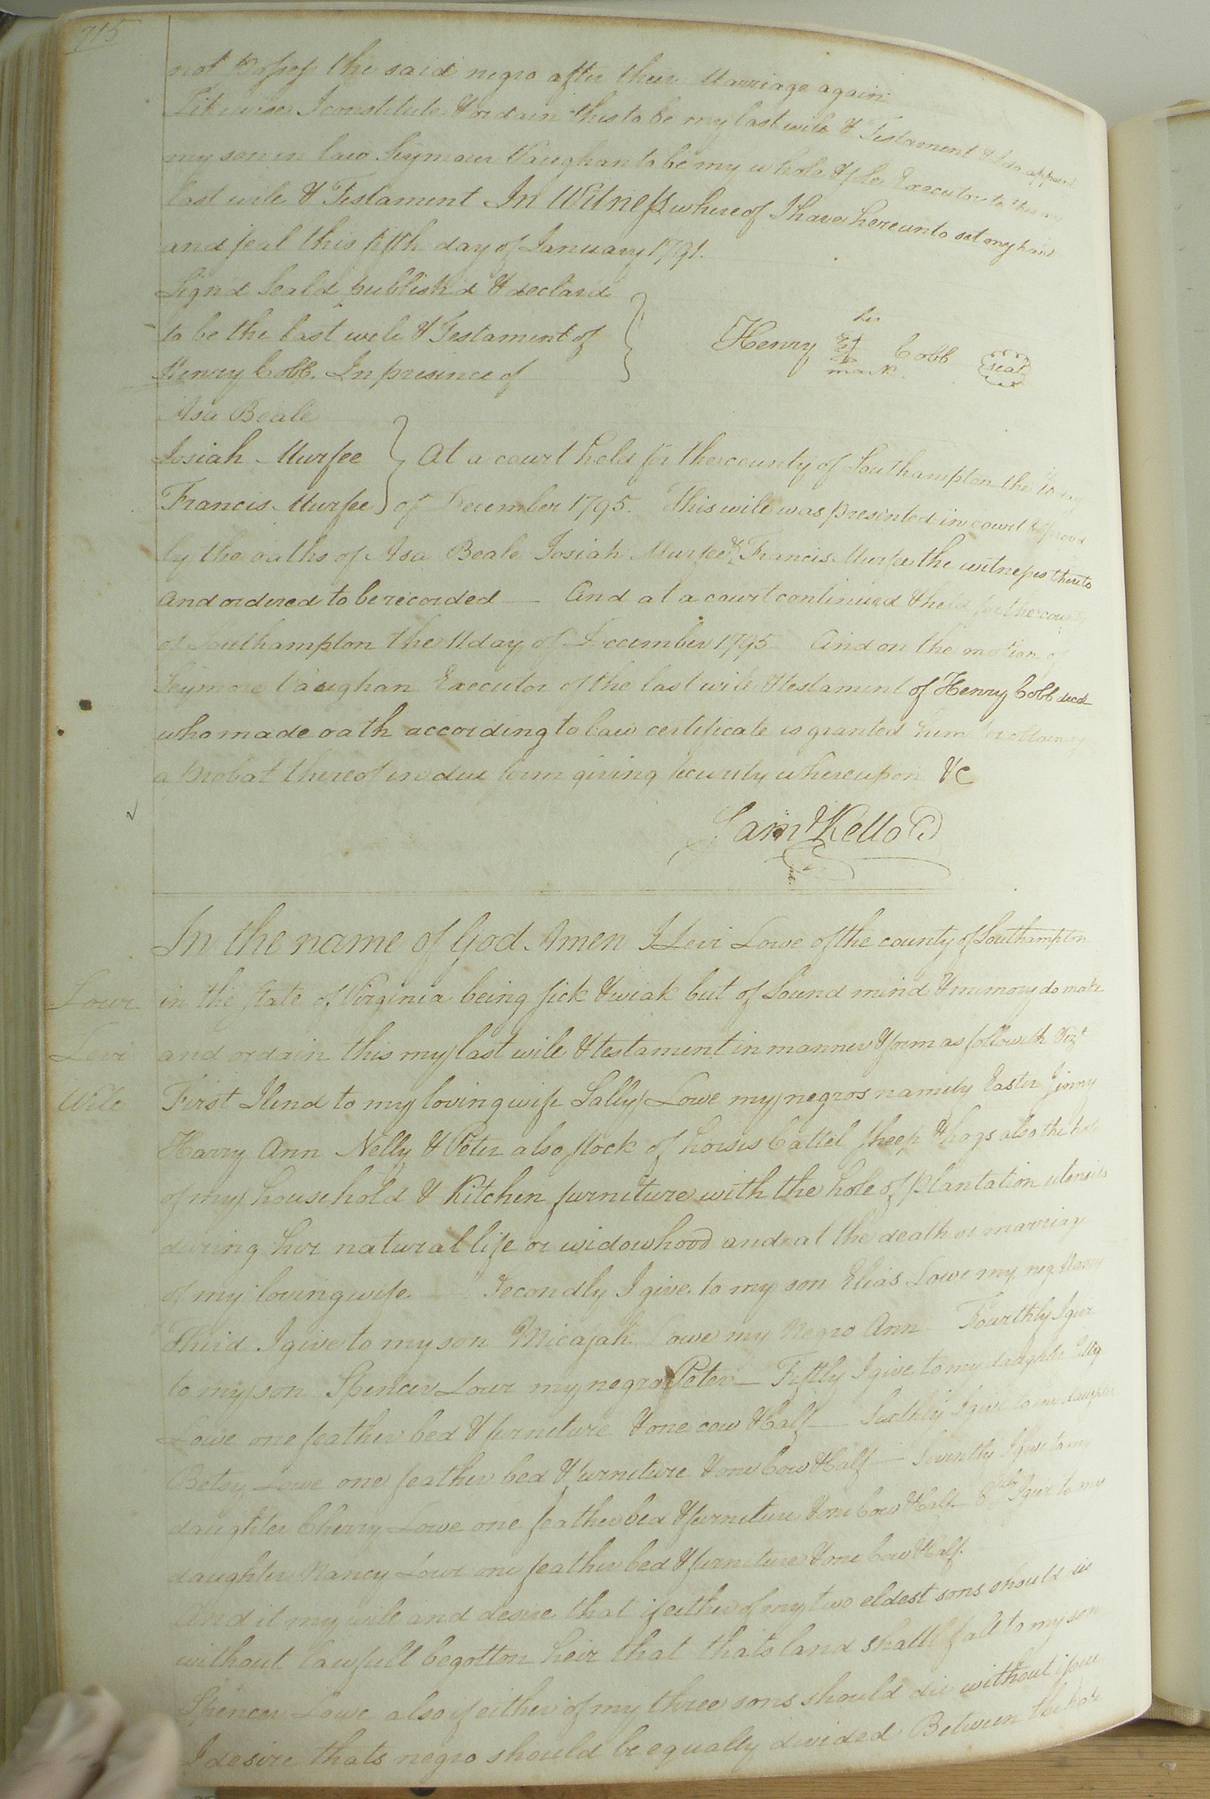 715
not Possess the said negro after their Marriage again
Likewise I constitute & ordain this to be my last will & Testament & I do appoint
my son in law Seymour Vaughan to be my whole & sole Executor to this my
last will & Testament In Witness whereof I have hereunto set my hand
and seal this fifth day of January 1791.
Signd Seald publishd & declard
to be the last will & Testament of
Henry Cobb. In presince of
his
Henry Cobb seal
mark
Asa Beale
Josiah Murfee
Francis Murfee
At a court held for the county of Southampton the
of December 1795. This will was presented in court & proved
by the oaths of Asa Beale Josiah Murfee & Francis Murfee the witnesses thereto
and ordered to be recorded — And at a court continued & held for the county
of Southampton the 11 day of December 1795 And on the motion of
Seymore Vaughan Executor of the last will & testament of Henry Cobb decd
who made oath according to law certificate is granted him for obtaining
a probat thereof in due form giving security whereupon &c
Saml Kello
In the name of God Amen I Levi Lowe of the county of Southampton
Lowe
Levi
Will
in the state of Virginia being sick & weak but of Sound mind & memory do make
and ordain this my last will & testament in manner & form as followeth Vizt
First I lend to my loving wife Sally Lowe my negros namely Easter Jinny
Harry Ann Nelly & Peter also stock of horses Cattel sheep & hogs also the hole
of my household & Kitchen furneture with the hole of plantation utensils
during her natural life or widowhood and at the death or marriage
of my loving wife. Secondly I give to my son Elias Lowe my neg Harry
Third I give to my son Micajah Lowe my Negro Ann Fourthly I give
to my son Spencer Lowe my negro Peter — Fiftly I give to my daughter
Lowe one feather bed & furneture & one cow & Calf — Sixthly I give to my daughter
Betsy Lowe one feather bed & furneture & one Cow & Calf — Seventhly I give to my
daughter Cherry Lowe one feather bed & furneture & one Cow & Calf I give to my
daughter Nancy Lowe one feather bed & furneture & one Cow & Calf.
and it my will and desire that if either of my two eldest sons should die
without lawfull begotton heir that thats land shall fall to my son
Spencer Lowe also if either of my three sons should die without issue
I desire thats negro should be equally divided Between the hole